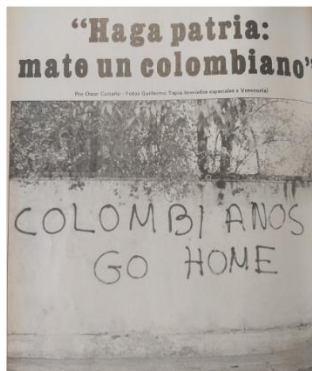 “Haga patria:
mate un colombiano”
Por Oscar
Fotos Guillermo Tapia (enviados especiales a Venezuela)
COLOMBIANOS
GO HOME